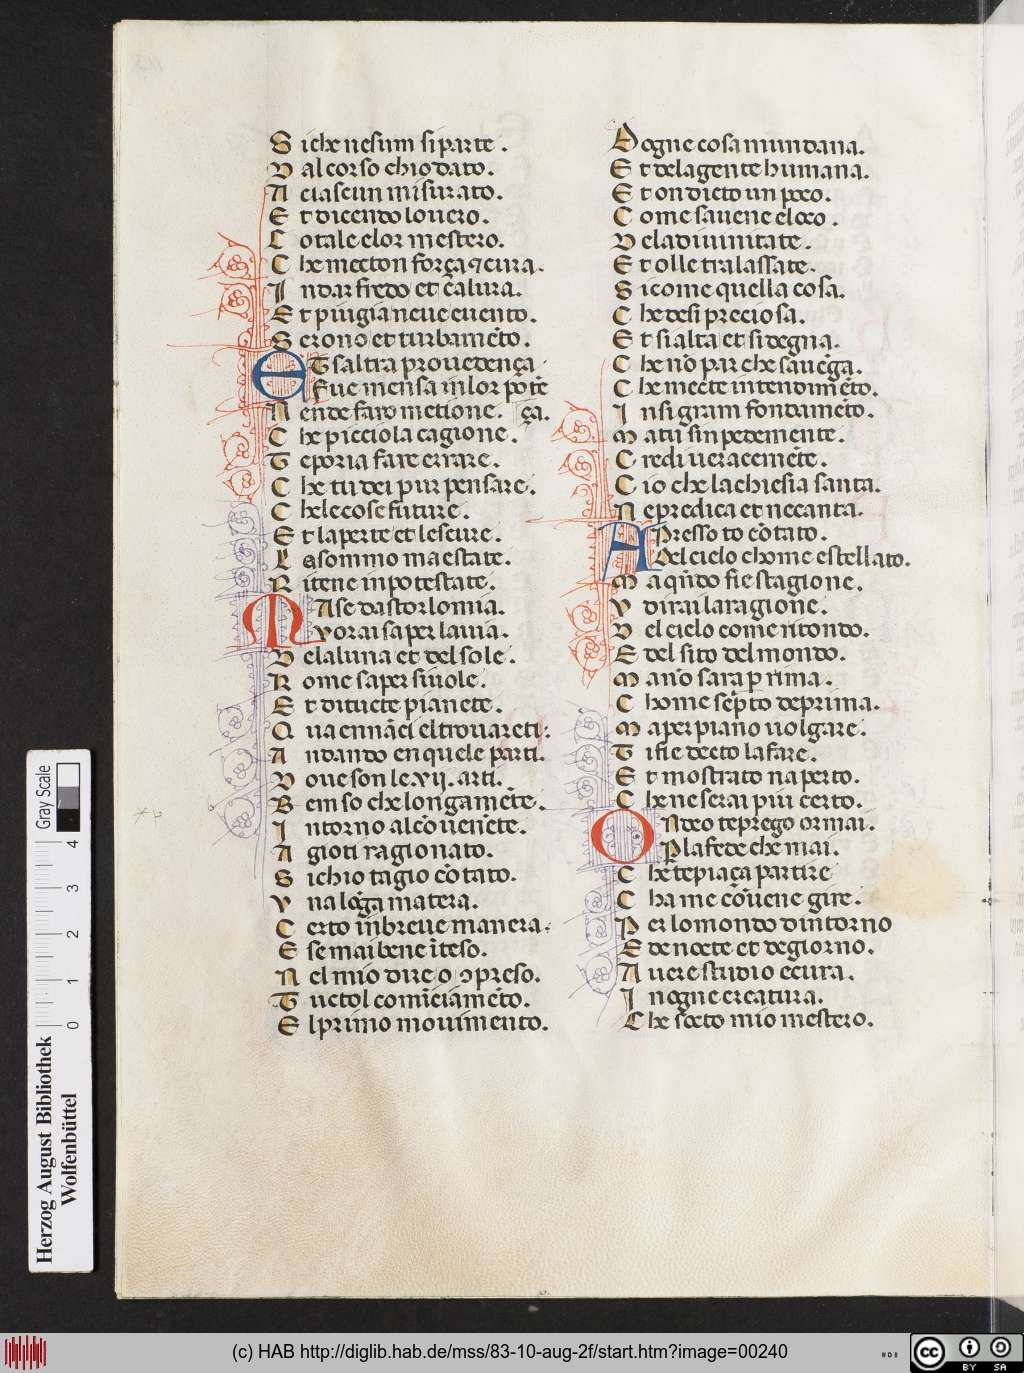 S iche nesum si parte .
D al corso chio dato.
A ciascun misurato.
E t dicendo lo uero.
C otale e lor mestero.
C he metton força ⁊ cura.
I n dar fredo et calura.
E t piu gia neue e uento.
S erono et turbamēto.
ET saltra prouedença
Fue mensa in lor potē
N en de faro mētione. ça.
C he picciola cagione .
T eporia fare errare.
C he tu dei piur pensare.
C he le cose future.
E t laperte et le scure.
L a sommo maestate.
R itene in potestate.
MA se da storlomia.
Vorai saper la uia.
D ela luna et del sole .
K ome saper si uole.
E t di tucte pianete.
Q ua ennāci el trouareti:
A ndando en quele parti.
D oue son le .vij. arti.
B em so che longamēte.
I ntorno al cōuenēte.
A gioti ragionato.
S ichio tagio cōtato.
V na lōga matera.
C erto in breue manera.
E se mai bene īteso.
N el mio dire o ɔpreso.
T uctol comīciamēto.
E l primo mouimento.
D ogne cosa mundana.
E t dela gente humana.
E t on dicto un poco.
C ome sauene eloco .
D ela diuinitate .
E t olle tralassate.
S i come quella cosa.
C he de si preciosa.
E t si alta et si degna.
C he nō par che sauēga.
C he mecte intendimēto.
I n si gram fondamēto.
M a tu sinpedemente.
C redi ueracemēte.
C io che la chiesia santa.
N e predica et ne canta.
APresso to cōtato.
Del cielo chome estellato.
M a qn̄do fie stagione.
V dirai la ragione.
D el cielo come ritondo.
E del sito del mondo.
M a nō sara p rima.
C home scp̄to de prima.
M a per piano uolgare.
T i fie decto lafare.
E t mostrato naperto.
C he ne serai piu certo.
ONdeo te prego ormai.
P la fede che mai.
C he te piaça partire
C ha me cōuene gire.
P er lo mondo dintorno
E de nocte et de giorno.
A uere studio e cura.
I n ogne creatura.
C he socto mio mestero.
Herzog August Bibliothek
Wolfenbüttel
Gray Scale
0 1 2 3 4
(c) HAB http://diglib.hab.de/mss/83-10-aug-2f/start.htm?image=00240
cc BY SA